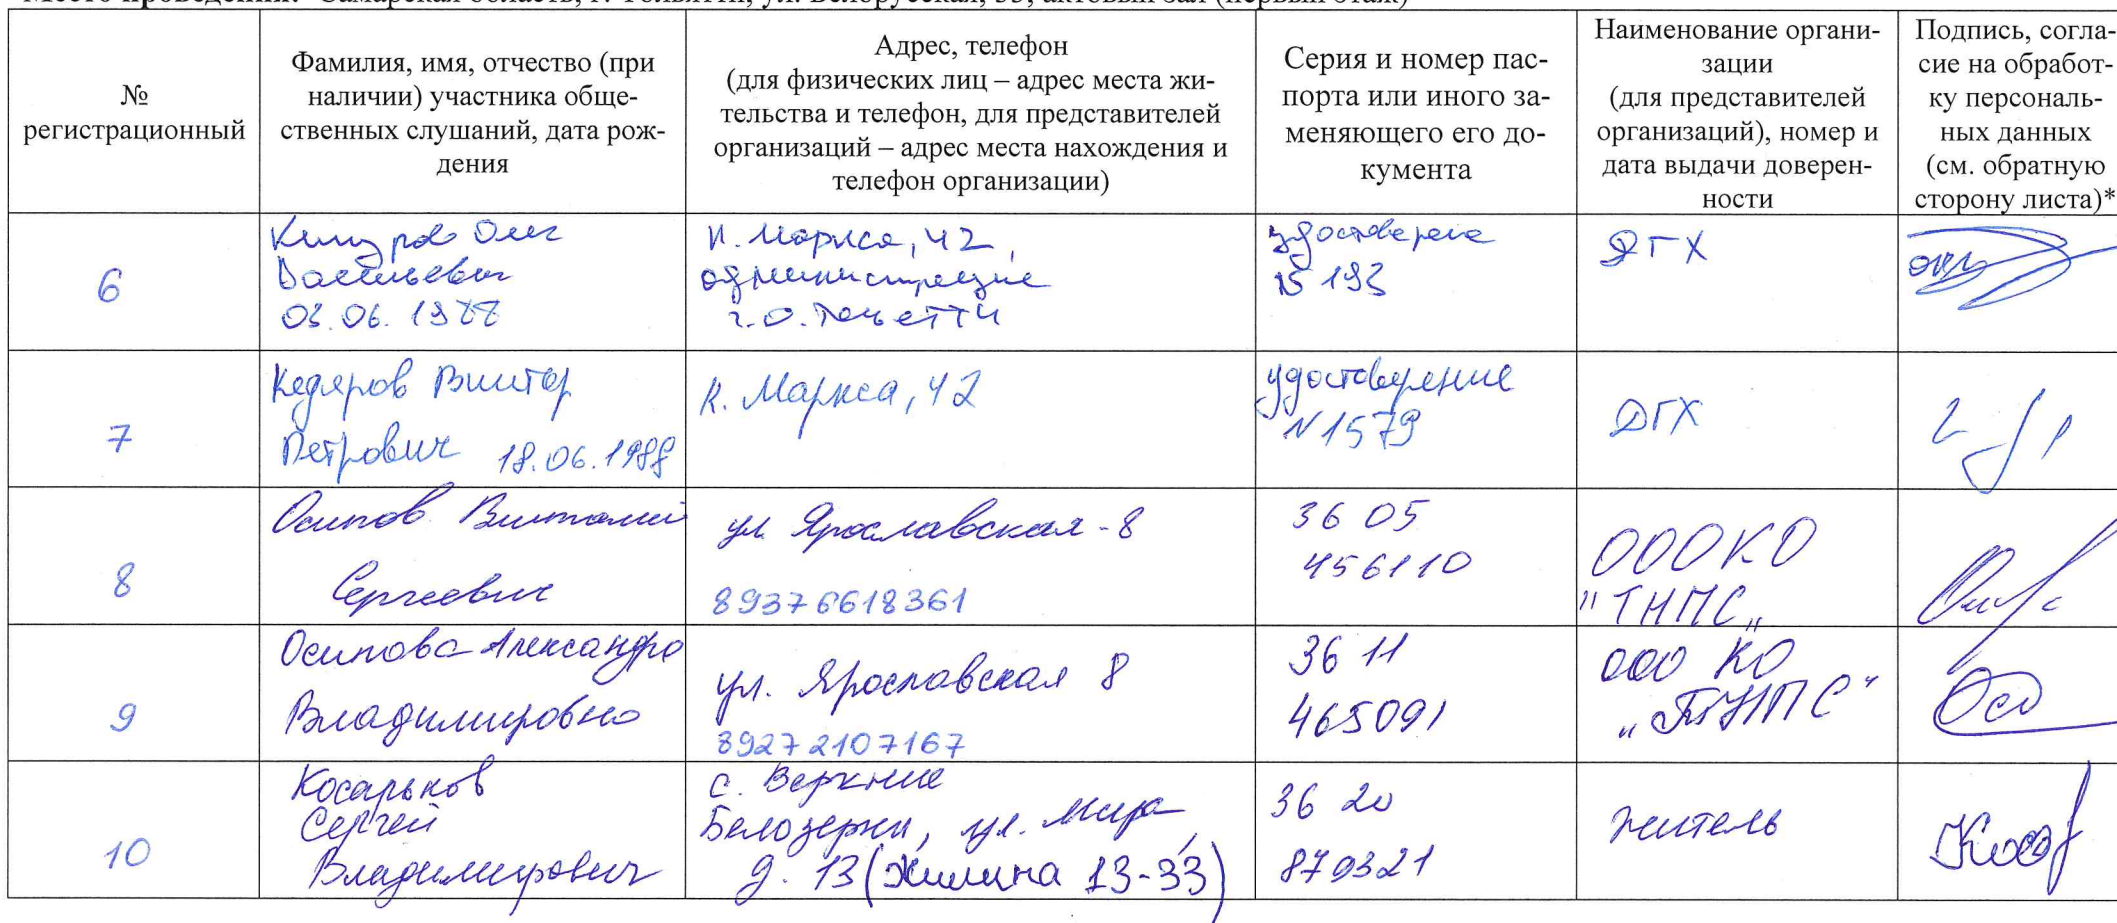 Место проведения: Самарская область, г. Тольятти, ул. Белорусская, 33, актовый зал (первый этаж)
№
регистрационный
Фамилия, имя, отчество (при
наличии) участника обще-
ственных слушаний, дата рож-
дения
Адрес, телефон
(для физических лиц – адрес места жи-
тельства и телефон, для представителей
организаций – адрес места нахождения и
телефон организации)
Серия и номер пас-
порта или иного за-
меняющего его до-
кумента
Наименование органи-
зации
(для представителей
организаций), номер и
дата выдачи доверен-
ности
Подпись, согла-
сие на обработ-
ку персональ-
ных данных
(см. обратную
сторону листа)*
6
Олег
Васильевич
03.06.1988
К. Маркса, 42,
администрация
г.о. Тольятти
удостоверение
№ 193
ДГХ
7
Кедяров Виктор
Петрович 18.06.1988
К. Маркса, 42
удостоверение
N 1579
ДГХ
8
Осипов Виталий
Сергеевич
ул. Ярославская - 8
89376618361
36 05
456110
ООО КО
"ТНПС"
9
Осипова Александра
Владимировна
ул. Ярославская 8
89272107167
36 11
465091
ООО КО
"ТНПС"
10
Косарьков
Сергей
Владимирович
с. Верхние
Белозерки, ул. Мира,
д. 13 (Жилина 13-33)
36 20
879321
житель